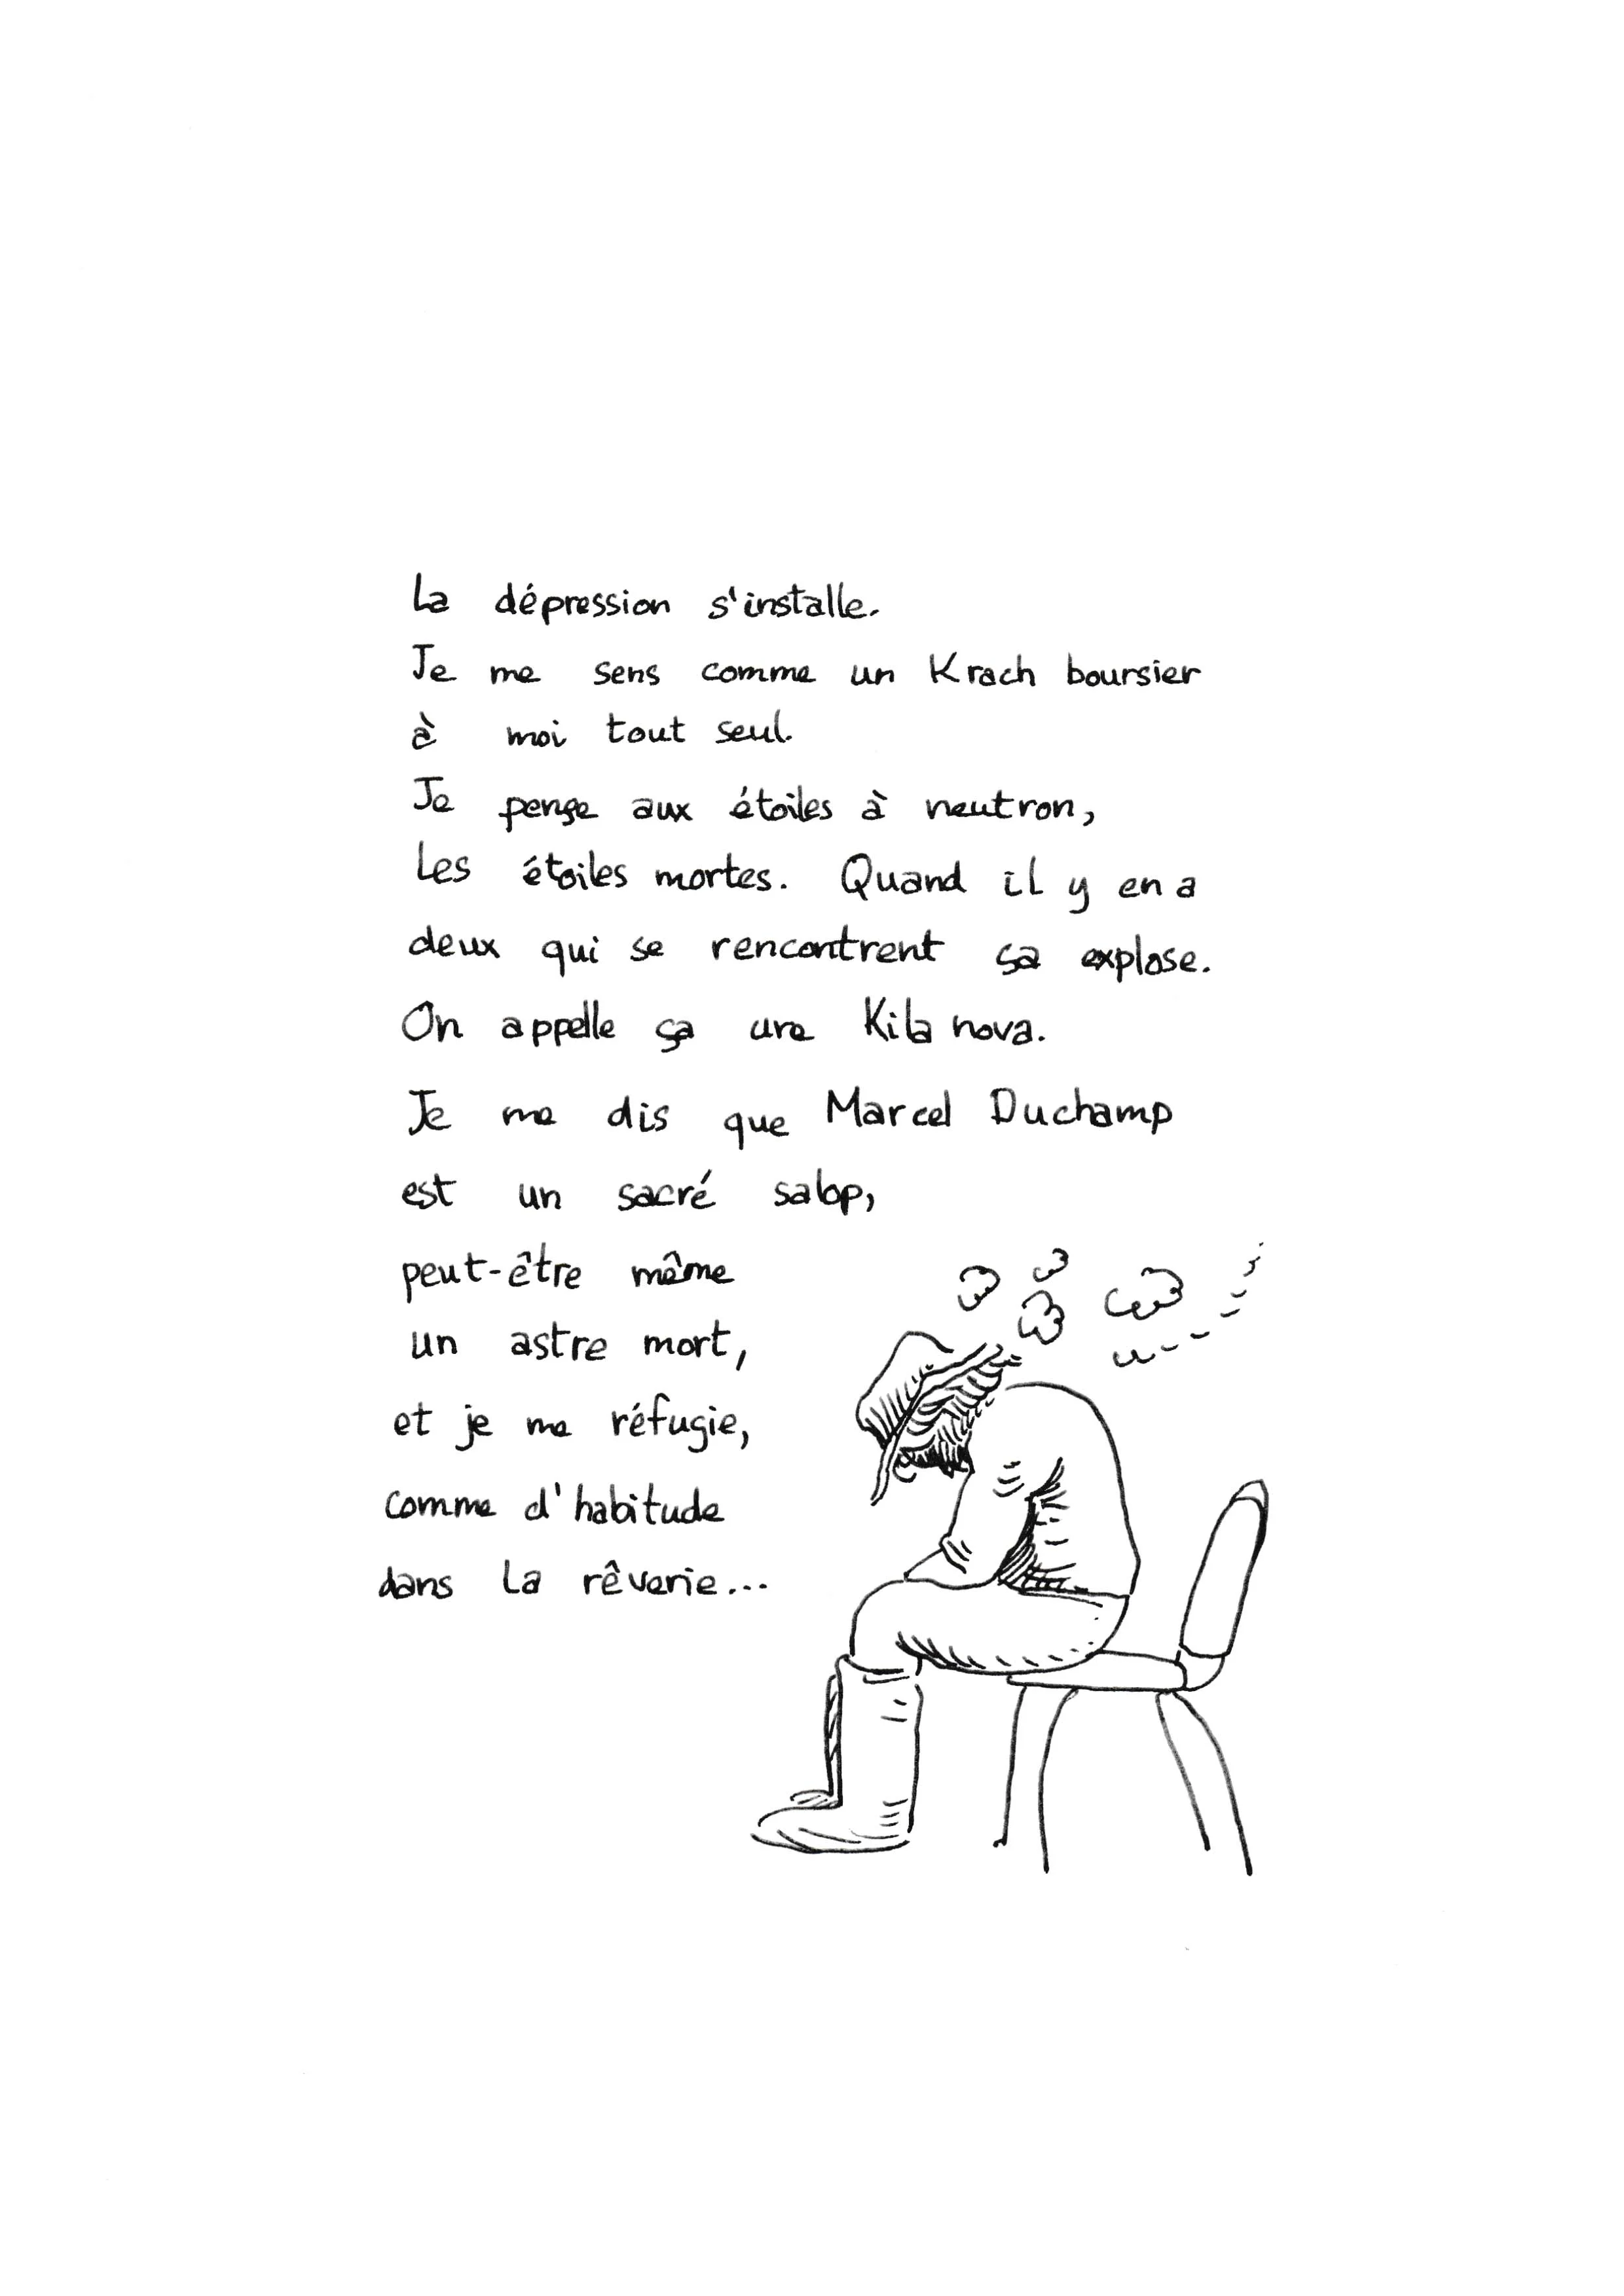 La dépression s'installe.
Je me sens comme un Krach boursier
à moi tout seul.
Je pense aux étoiles à neutron,
Les étoiles mortes. Quand il y en a
deux qui se rencontrent ça explose.
On appelle ça une Kilanova.
Je me dis que Marcel Duchamp
est un sacré salop,
peut-être même
un astre mort,
et je me réfugie,
comme d'habitude
dans la rêverie...